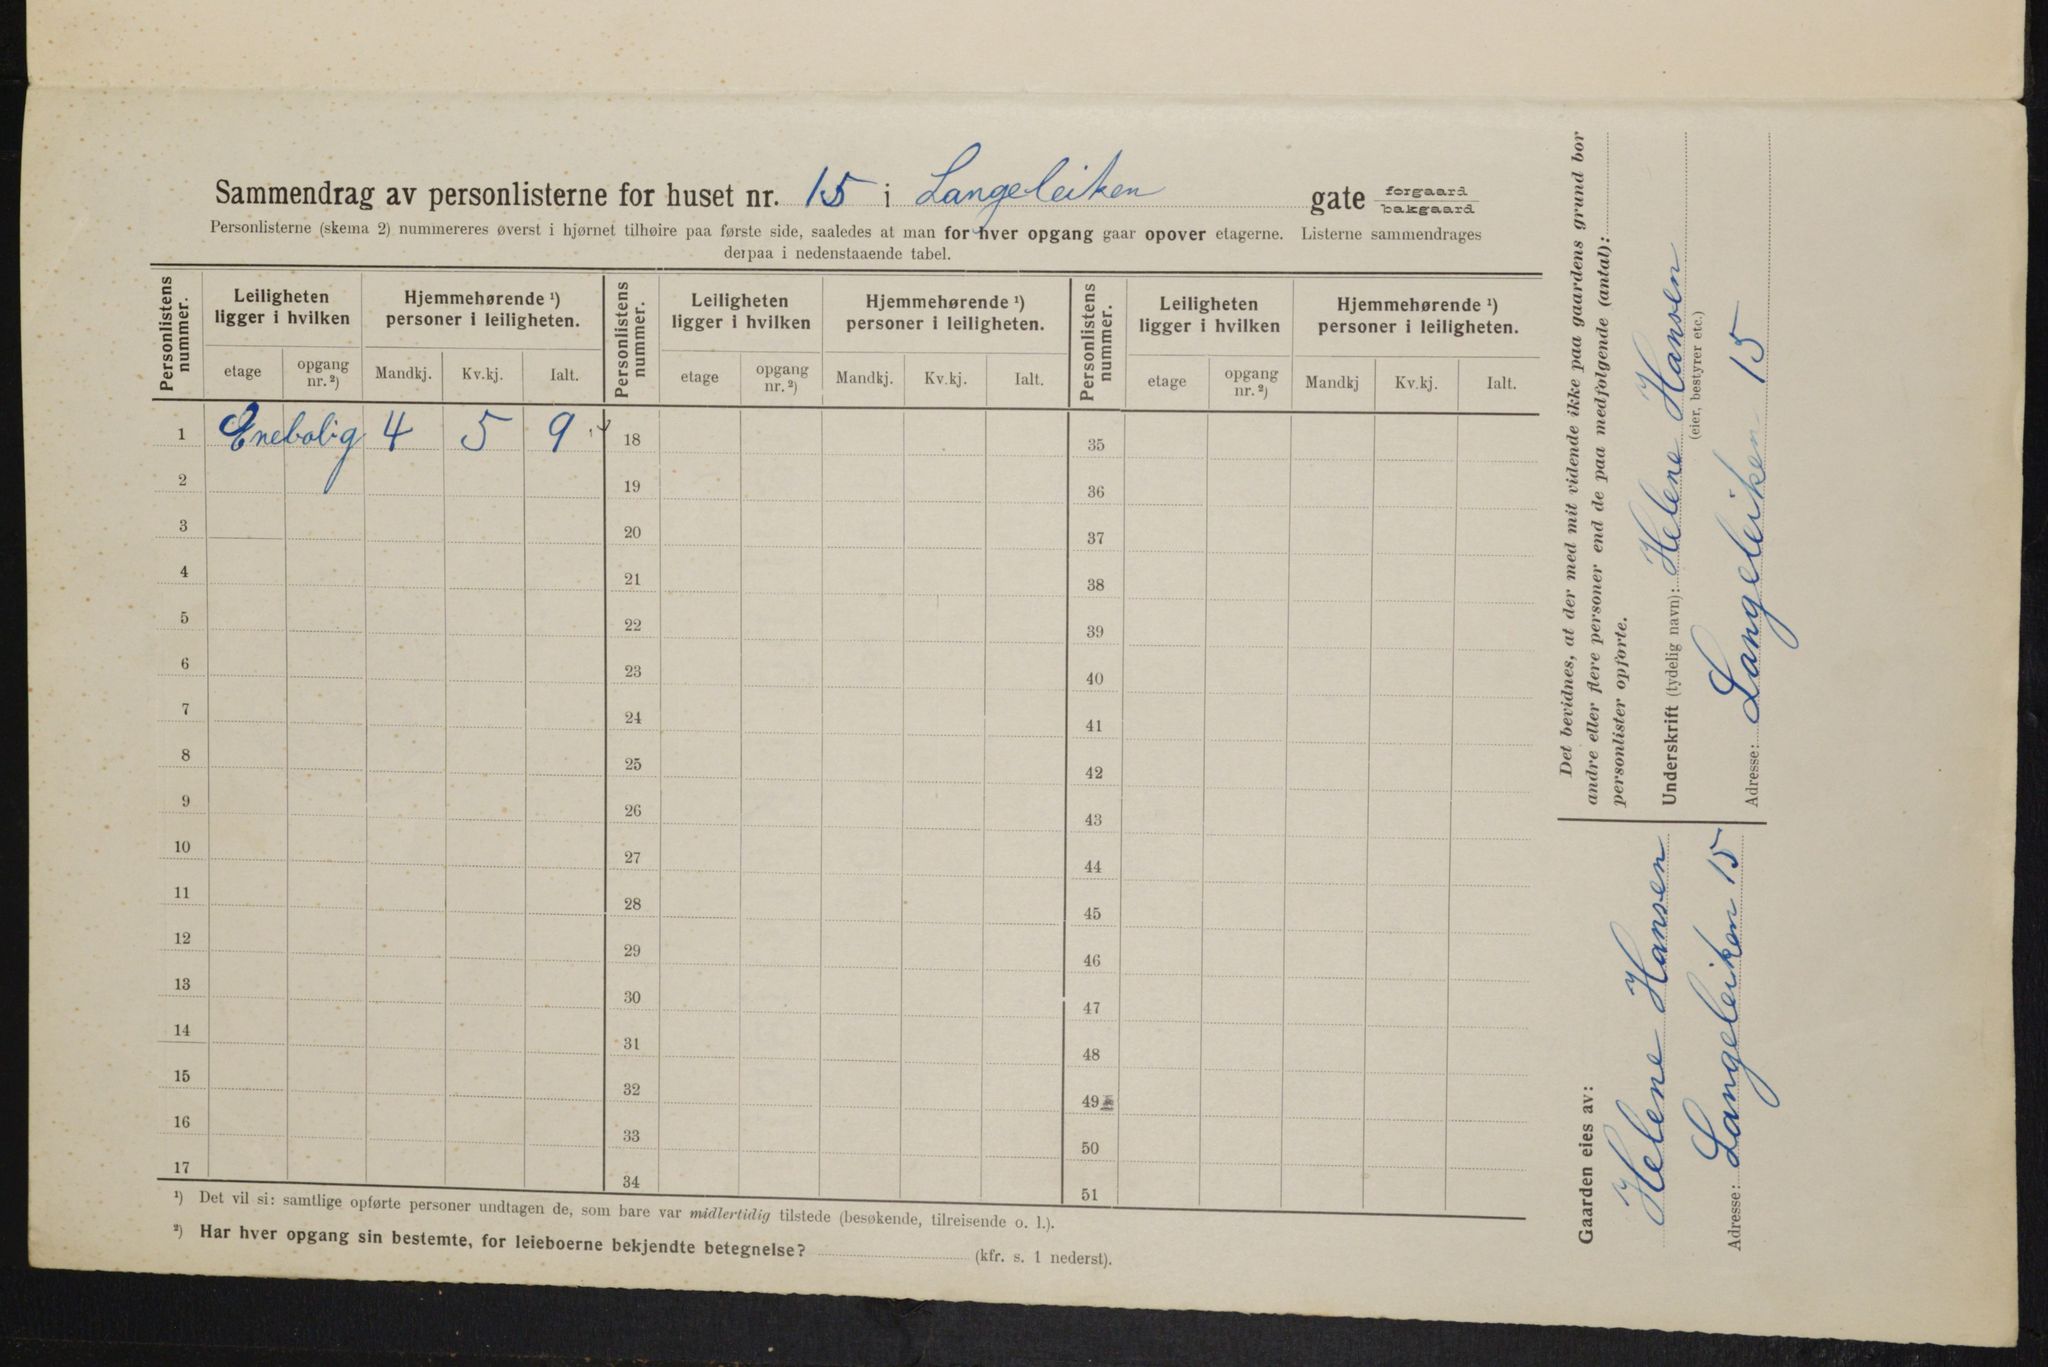 Sammendrag av personlisterne for huset nr. 15 i Langeleiken gate forgaard bakgaard
Personlisterne (skema 2) nummereres øverst i hjørnet tilhøire paa første side, saaledes at man for hver opgang gaar opover etagerne. Listerne sammendrages
derpaa i nedenstaaende tabel.
Personlistens nummer. Leiligheten ligger i hvilken Hjemmehørende ¹) personer i leiligheten. Personlistens nummer. Leiligheten ligger i hvilken Hjemmehørende ¹) personer i leiligheten. Personlistens nummer. Leiligheten ligger i hvilken Hjemmehørende ¹) personer i leiligheten.
etage opgang nr. ²) Mandkj. Kv.kj. Ialt. etage opgang nr. ²) Mandkj. Kv.kj. Ialt. etage opgang nr. ²) Mandkj Kv.kj. Ialt.
1 Enebolig 4 5 9 18 35
2 19 36
3 20 37
4 21 38
5 22 39
6 23 40
7 24 41
8 25 42
9 26 43
10 27 44
11 28 45
12 29 46
13 30 47
14 31 48
15 32 49
16 33 50
17 34 51
¹) Det vil si: samtlige opførte personer undtagen de, som bare var midlertidig tilstede (besøkende, tilreisende o. l.).
²) Har hver opgang sin bestemte, for leieboerne bekjendte betegnelse? (kfr. s. 1 nederst).
Det bevidnes, at der med mit vidende ikke paa gaardens grund bor
andre eller flere personer end de paa medfølgende (antal):
personlister opførte.
Underskrift (tydelig navn): Helene Hansen
(eier, bestyrer etc.)
Adresse: Langeleiken 15
Gaarden eies av:
Helene Hansen
Adresse: Langeleiken 15